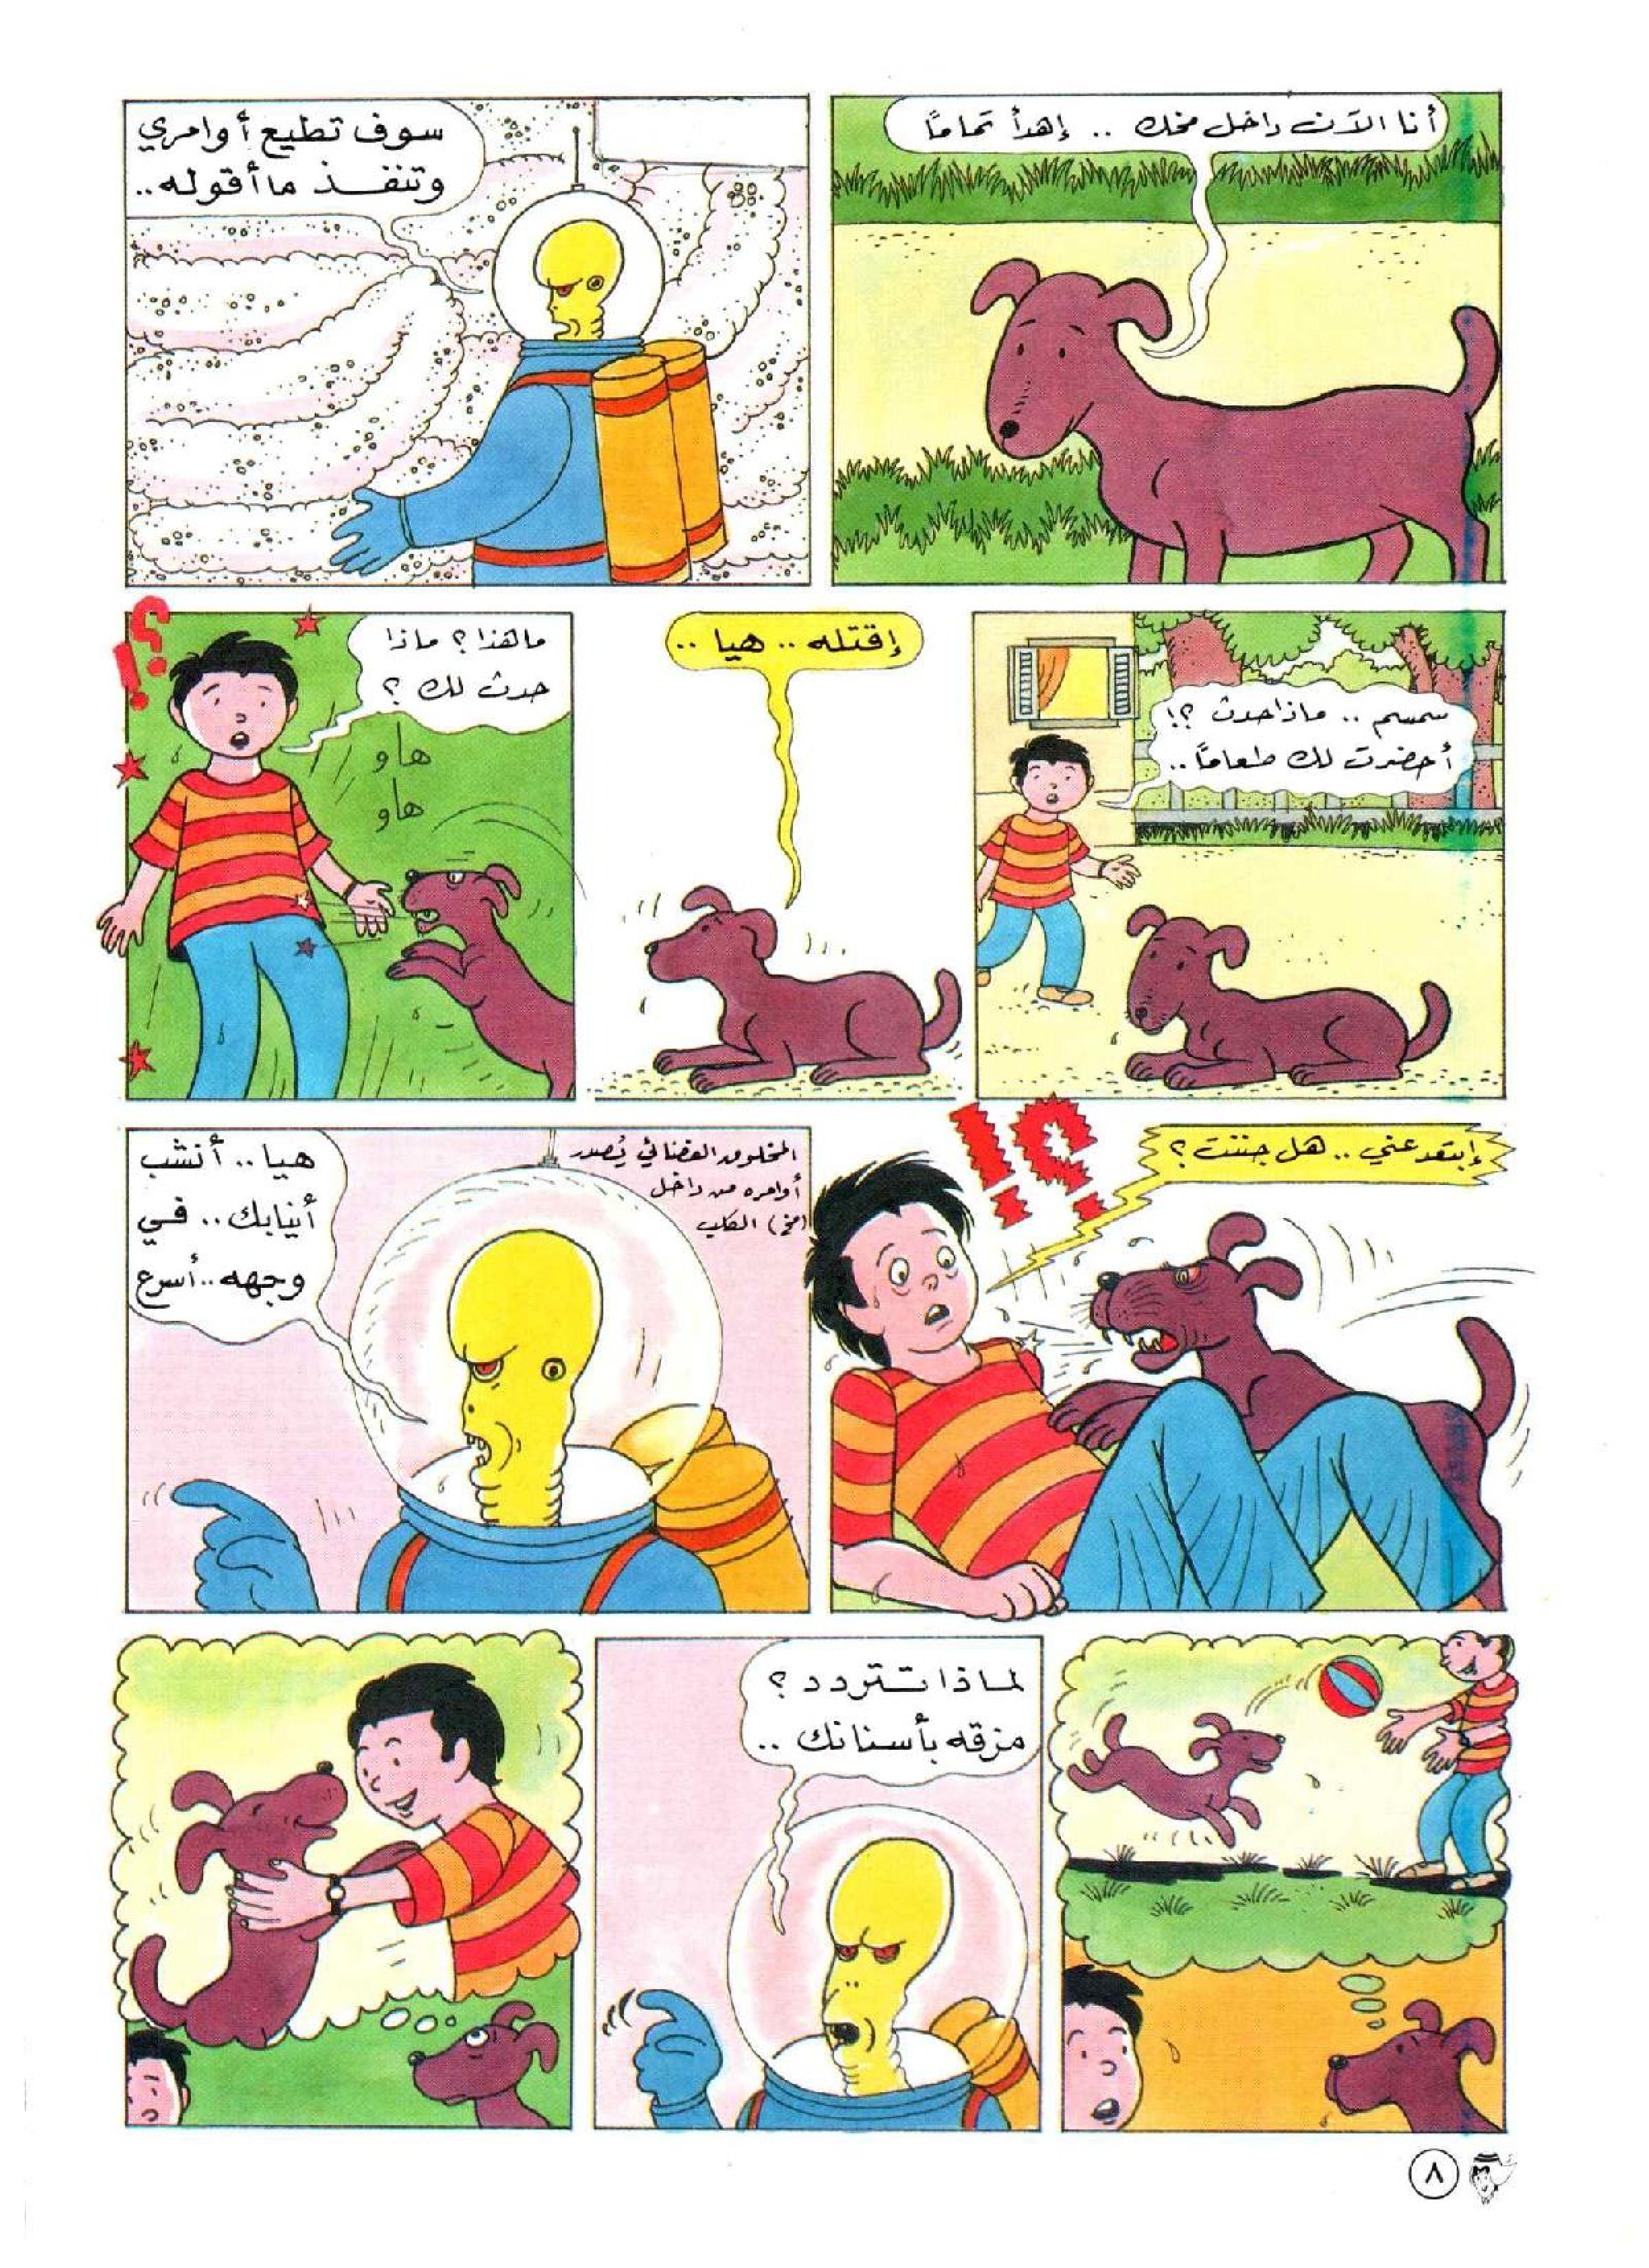 أنا الآن داخل مخك .. إهدأ تماماً
سوف تطيع أوامري
وتنفذ ما أقوله..
سمسم .. ماذا حدث ؟!
أحضرت لك طعاماً ..
إقتله .. هيا ..
ما هذا ؟ ماذا
حدث لك ؟
هاو
هاو
؟!
إبتعد عني .. هل جننت ؟
؟!
المخلوق الفضائي يُصدر
أوامره من داخل
(مخ) الكلب
هيا .. أنشب
أنيابك .. في
وجهه .. أسرع
لماذا تتردد ؟
مزقه بأسنانك ..
٨